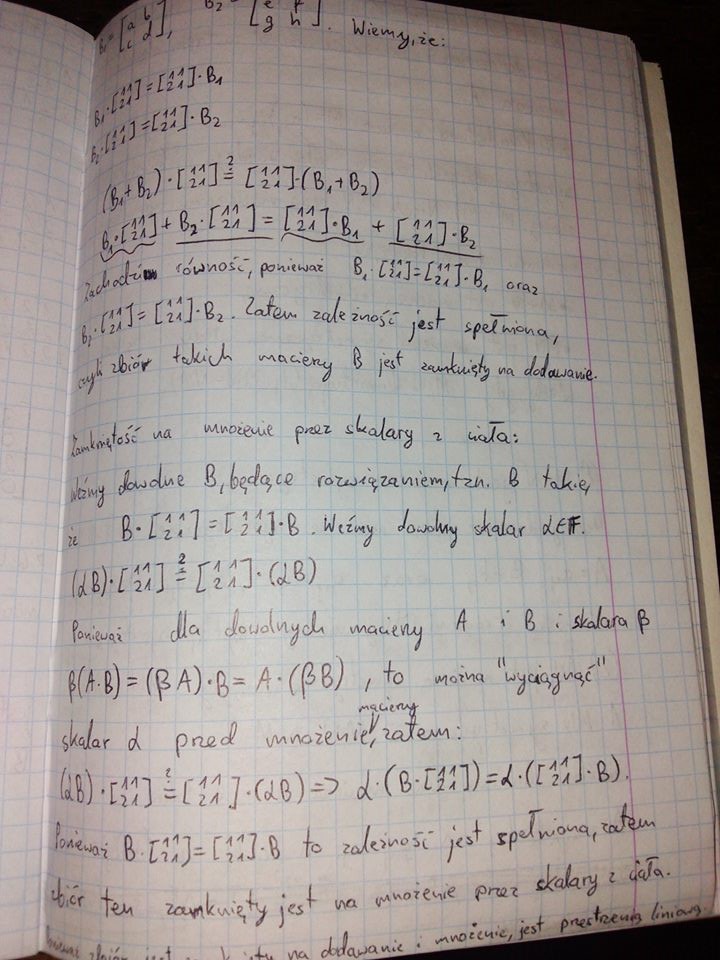 B₁ = [a b; c d], B₂ = [e f; g h]. Wiemy, że:
B₁·[1 1; 2 1] = [1 1; 2 1]·B₁
B₂·[1 1; 2 1] = [1 1; 2 1]·B₂
(B₁+B₂)·[1 1; 2 1] ≟ [1 1; 2 1]·(B₁+B₂)
B₁·[1 1; 2 1] + B₂·[1 1; 2 1] = [1 1; 2 1]·B₁ + [1 1; 2 1]·B₂
Zachodzi równość, ponieważ B₁·[1 1; 2 1] = [1 1; 2 1]·B₁ oraz
B₂·[1 1; 2 1] = [1 1; 2 1]·B₂. Zatem zależność jest spełniona,
czyli zbiór takich macierzy B jest zamknięty na dodawanie.
Zamkniętość na mnożenie przez skalary z ciała:
Weźmy dowolne B, będące rozwiązaniem, tzn. B takie,
że B·[1 1; 2 1] = [1 1; 2 1]·B. Weźmy dowolny skalar α∈F.
(αB)·[1 1; 2 1] ≟ [1 1; 2 1]·(αB)
Ponieważ dla dowolnych macierzy A i B i skalara β
β(A·B) = (βA)·B = A·(βB), to można "wyciągnąć"
macierzy
skalar α przed mnożenie, zatem:
(αB)·[1 1; 2 1] ≟ [1 1; 2 1]·(αB) => α·(B·[1 1; 2 1]) = α·([1 1; 2 1]·B).
Ponieważ B·[1 1; 2 1] = [1 1; 2 1]·B to zależność jest spełniona, zatem
zbiór ten zamknięty jest na mnożenie przez skalary z ciała.
Ponieważ zbiór jest zamknięty na dodawanie i mnożenie, jest przestrzenią liniową.